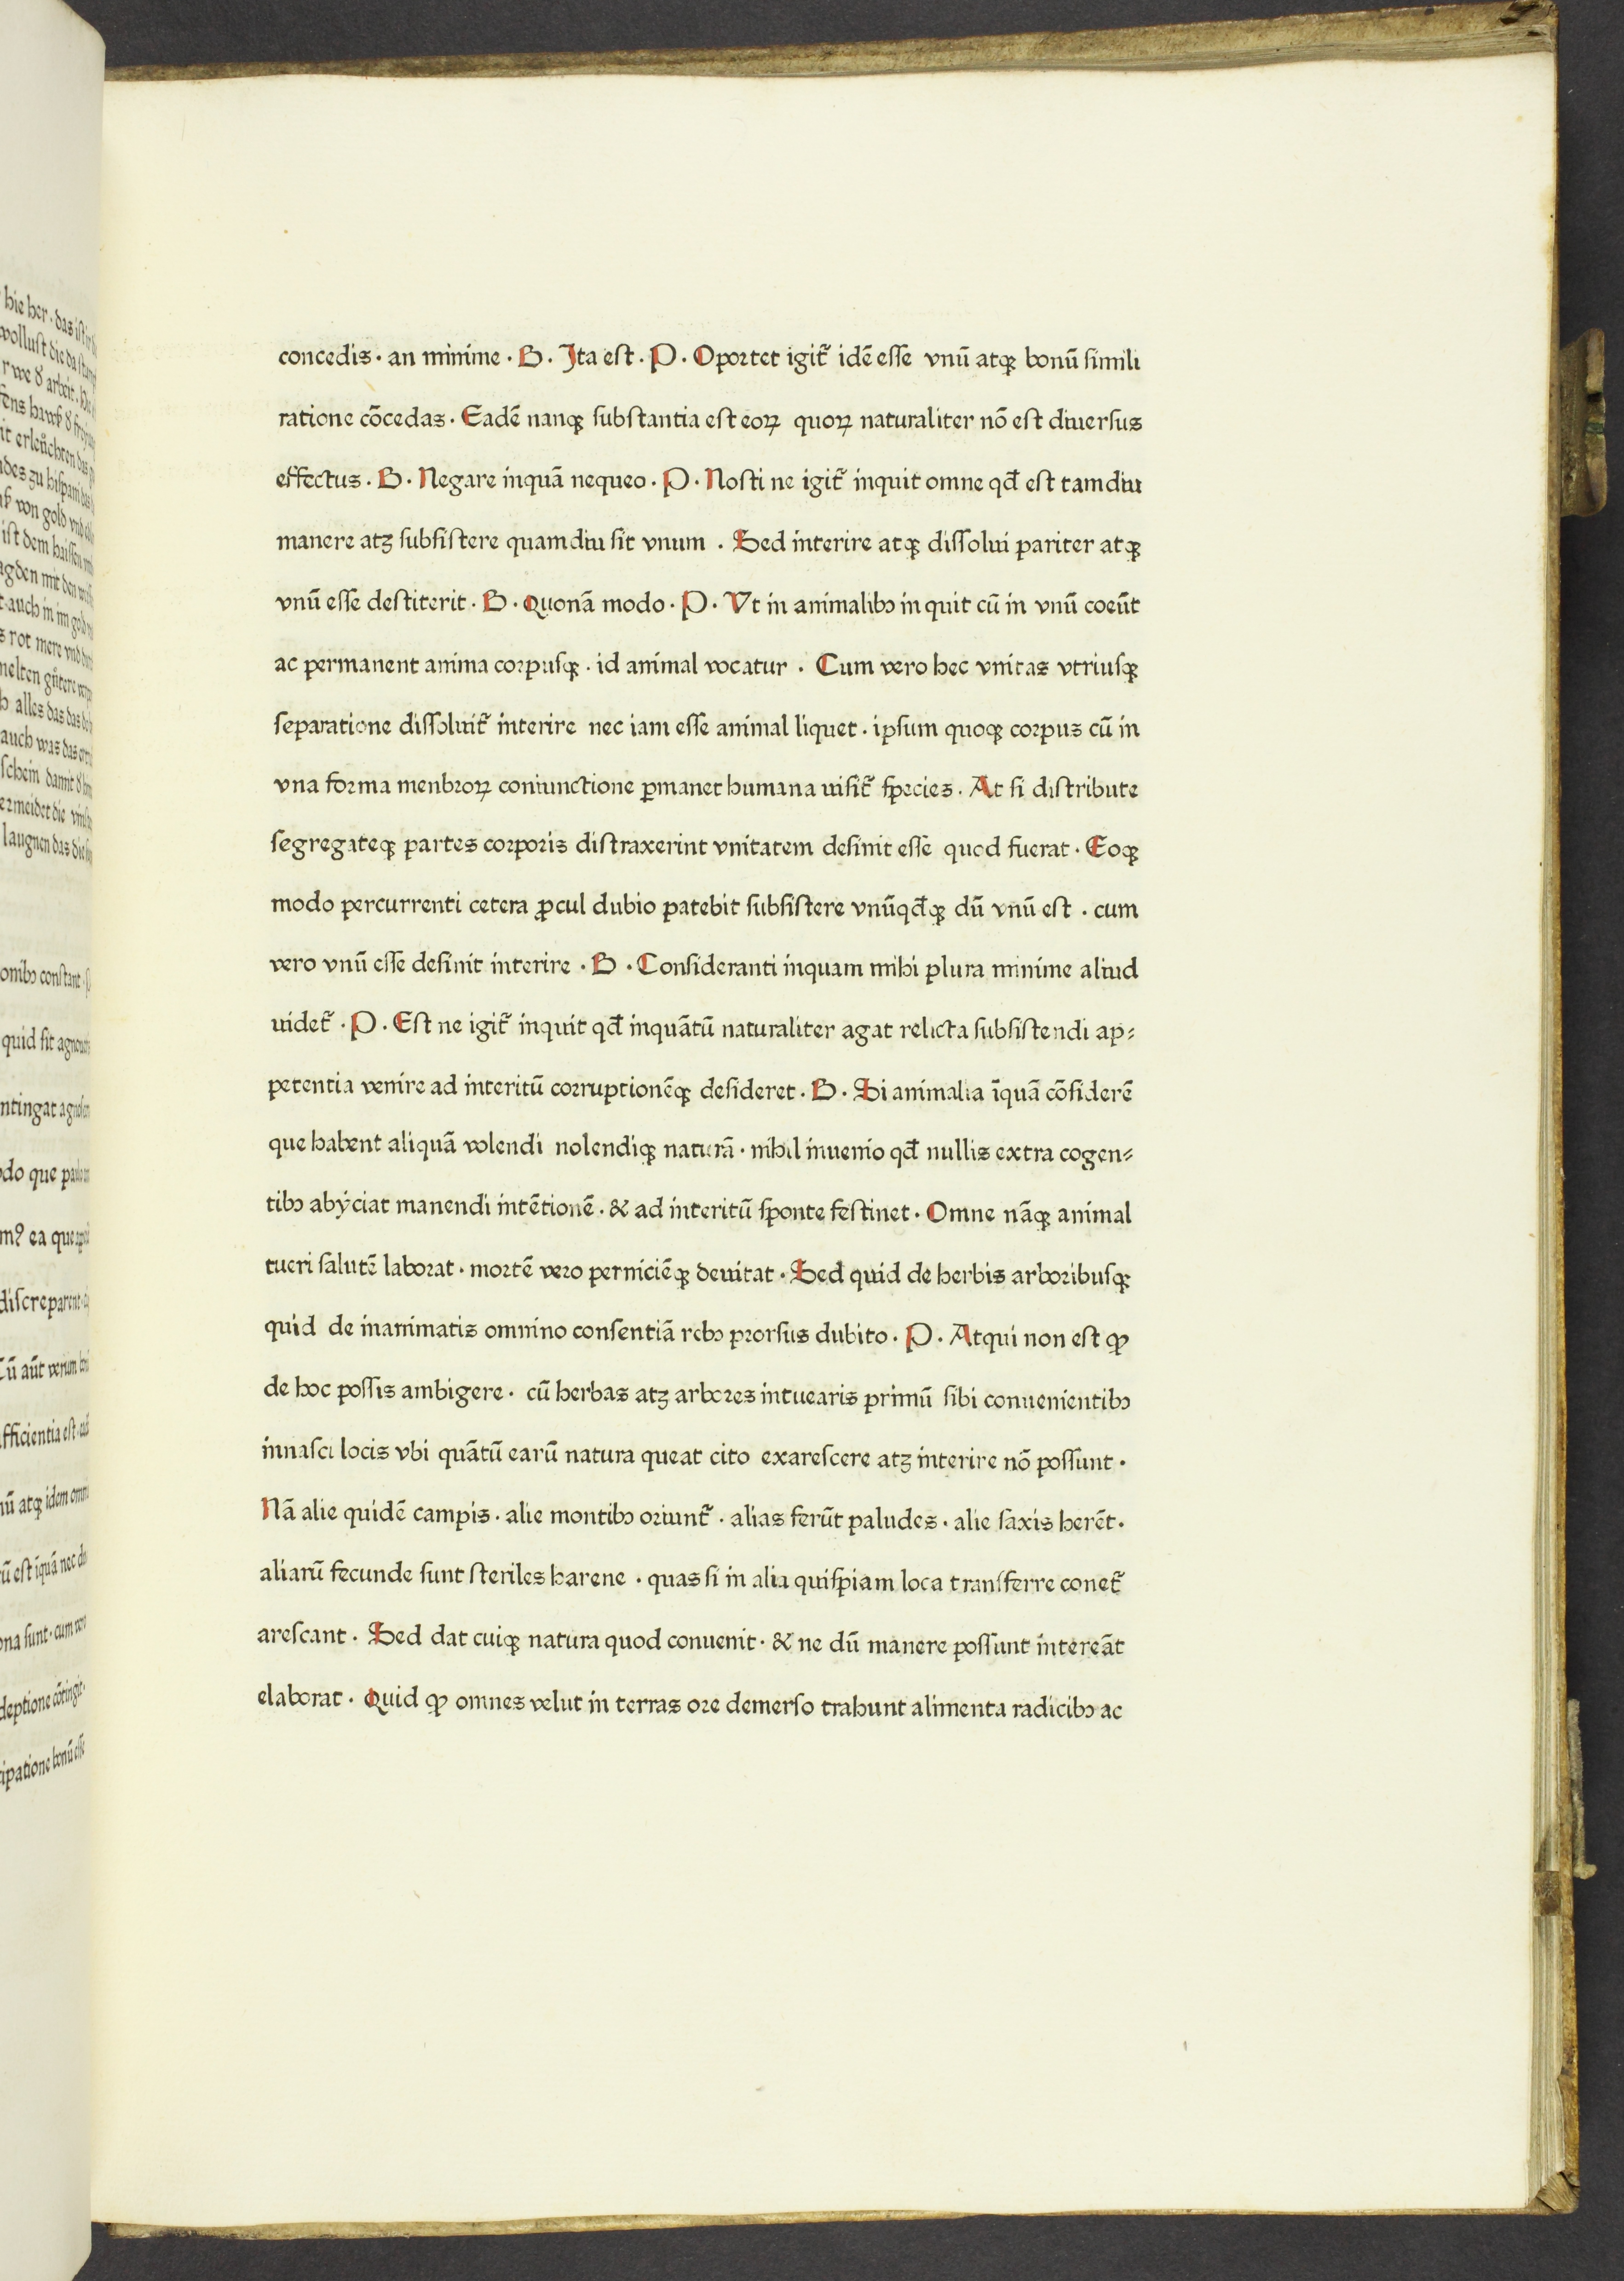 hie her · das ist
wollust die da
r we & arbeit ·
it erleüchten das
des zu hispani das
von gold vnd
ist dem haissen
agden mit den
auch in im gold
s rot mere vnd
melten gůtere
alles das das
auch was das
schein damit &
ermeidet die
laugnen das die
onibꝯ constant ·
quid sit
ntingat
odo que
m? ea que
discreparent ·
aūt verum
fficientia est ·
nū atqꝫ idem omni
est īquā nec
ona sunt · cum vero
deptione cōtingit ·
cipatione bonū esse
concedis · an minime · B · Ita est · P · Oportet igit᷑ idē esse vnū atqꝫ bonū simili
ratione cōcedas · Eadē nanqꝫ substantia est eoꝝ quoꝝ naturaliter nō est diuersus
effectus · B · Negare inquā nequeo · P · Nosti ne igit᷑ inquit omne qđ est tamdiu
manere atꝫ subsistere quamdiu sit vnum · Sed interire atqꝫ dissolui pariter atqꝫ
vnū esse destiterit · B · Quonā modo · P · Vt in animalibꝯ in quit cū in vnū coeūt
ac permanent anima corpusqꝫ · id animal vocatur · Cum vero hec vnitas vtriusqꝫ
separatione dissoluit᷑ interire nec iam esse animal liquet · ipsum quoqꝫ corpus cū in
vna forma menbroꝝ coniunctione ꝑmanet humana uisit᷑ species · At si distribute
segregateqꝫ partes corporis distraxerint vnitatem desinit esse quod fuerat · Eoqꝫ
modo percurrenti cetera ꝓcul dubio patebit subsistere vnūqđqꝫ dū vnū est · cum
vero vnū esse desinit interire · B · Consideranti inquam mihi plura minime aliud
uidet᷑ · P · Est ne igit᷑ inquit qđ inquātū naturaliter agat relicta subsistendi ap⸗
petentia venire ad interitū corruptionēqꝫ desideret · B · Si animalia īquā cōsiderē
que habent aliquā volendi nolendiqꝫ naturā · nihil inuenio qđ nullis extra cogen⸗
tibꝯ abÿciat manendi intētionē · & ad interitū sponte festinet · Omne nāqꝫ animal
tueri salutē laborat · mortē vero perniciēqꝫ deuitat · Sed quid de herbis arboribusqꝫ
quid de inanimatis omnino consentiā rebꝯ prorsus dubito · P · Atqui non est ꝙ
de hoc possis ambigere · cū herbas atꝫ arbores intuearis primū sibi conuenientibꝯ
innasci locis vbi quātū earū natura queat cito exarescere atꝫ interire nō possunt ·
Nā alie quidē campis · alie montibꝯ oriunt᷑ · alias ferūt paludes · alie saxis herēt ·
aliarū fecunde sunt steriles harene · quas si in alia quispiam loca transferre conet᷑
arescant · Sed dat cuiqꝫ natura quod conuenit · & ne dū manere possunt intereāt
elaborat · Quid ꝙ omnes velut in terras ore demerso trahunt alimenta radicibꝯ ac